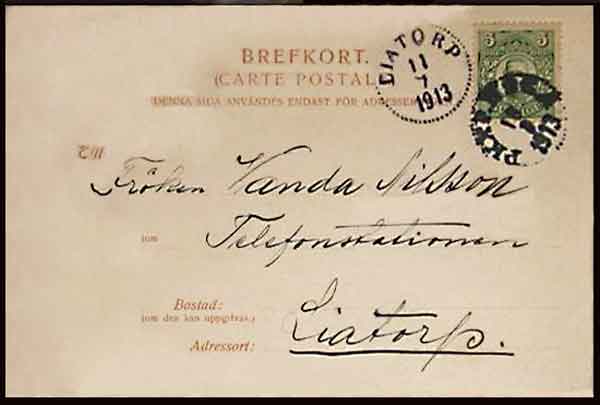 BREFKORT.
(CARTE POSTAL
DENNA SIDA ANVÄNDES ENDAST FÖR ADRESSEN
LIATORP
11
7
1913
5 5
1913
Till
Fröken Wanda Nilsson
som
Telefonstationen
Bostad:
(om den kan uppgifvas.)
Liatorp.
Adressort: